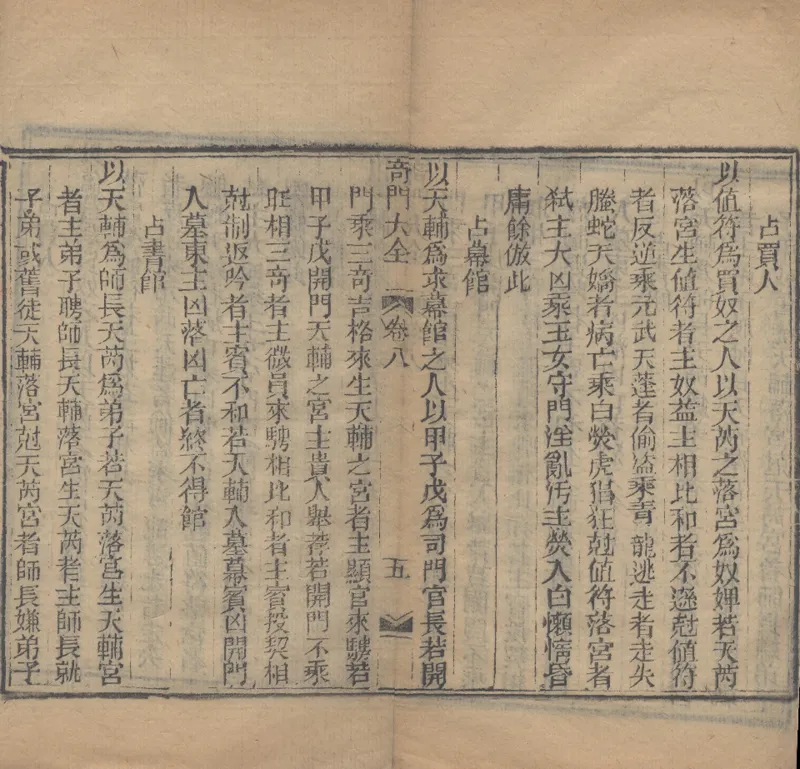 占買人
以值符爲買奴之人以天芮之落宮爲奴婢若天芮
落宮生值符者主奴益主相比和者不遜尅值符
者反逆乘元武天蓬者偷盗乘青龍逃走者走失
螣蛇天嬌者病亡乘白熒虎猖狂尅值符落宮者
弑主大凶乘玉女守門淫亂汚主熒入白懶惰昏
庸餘倣此
占幕館
以天輔爲求幕館之人以甲子戊爲司門官長若開
奇門大全 卷八 五
門乘三奇吉格來生天輔之宮者主顯官來騁若
甲子戊開門天輔之宮主貴人舉荐若開門不乘
旺相三奇者主微員來騁相比和者主賓投契相
尅制返吟者主賓不和若天輔入墓幕賓凶開門
入墓東主凶落凶亡者終不得館
占書館
以天輔爲師長天芮爲弟子若天芮落宮生天輔宮
者主弟子聘師長天輔落宮生天芮者主師長就
子弟或舊徒天輔落宮尅天芮宮者師長嫌弟子